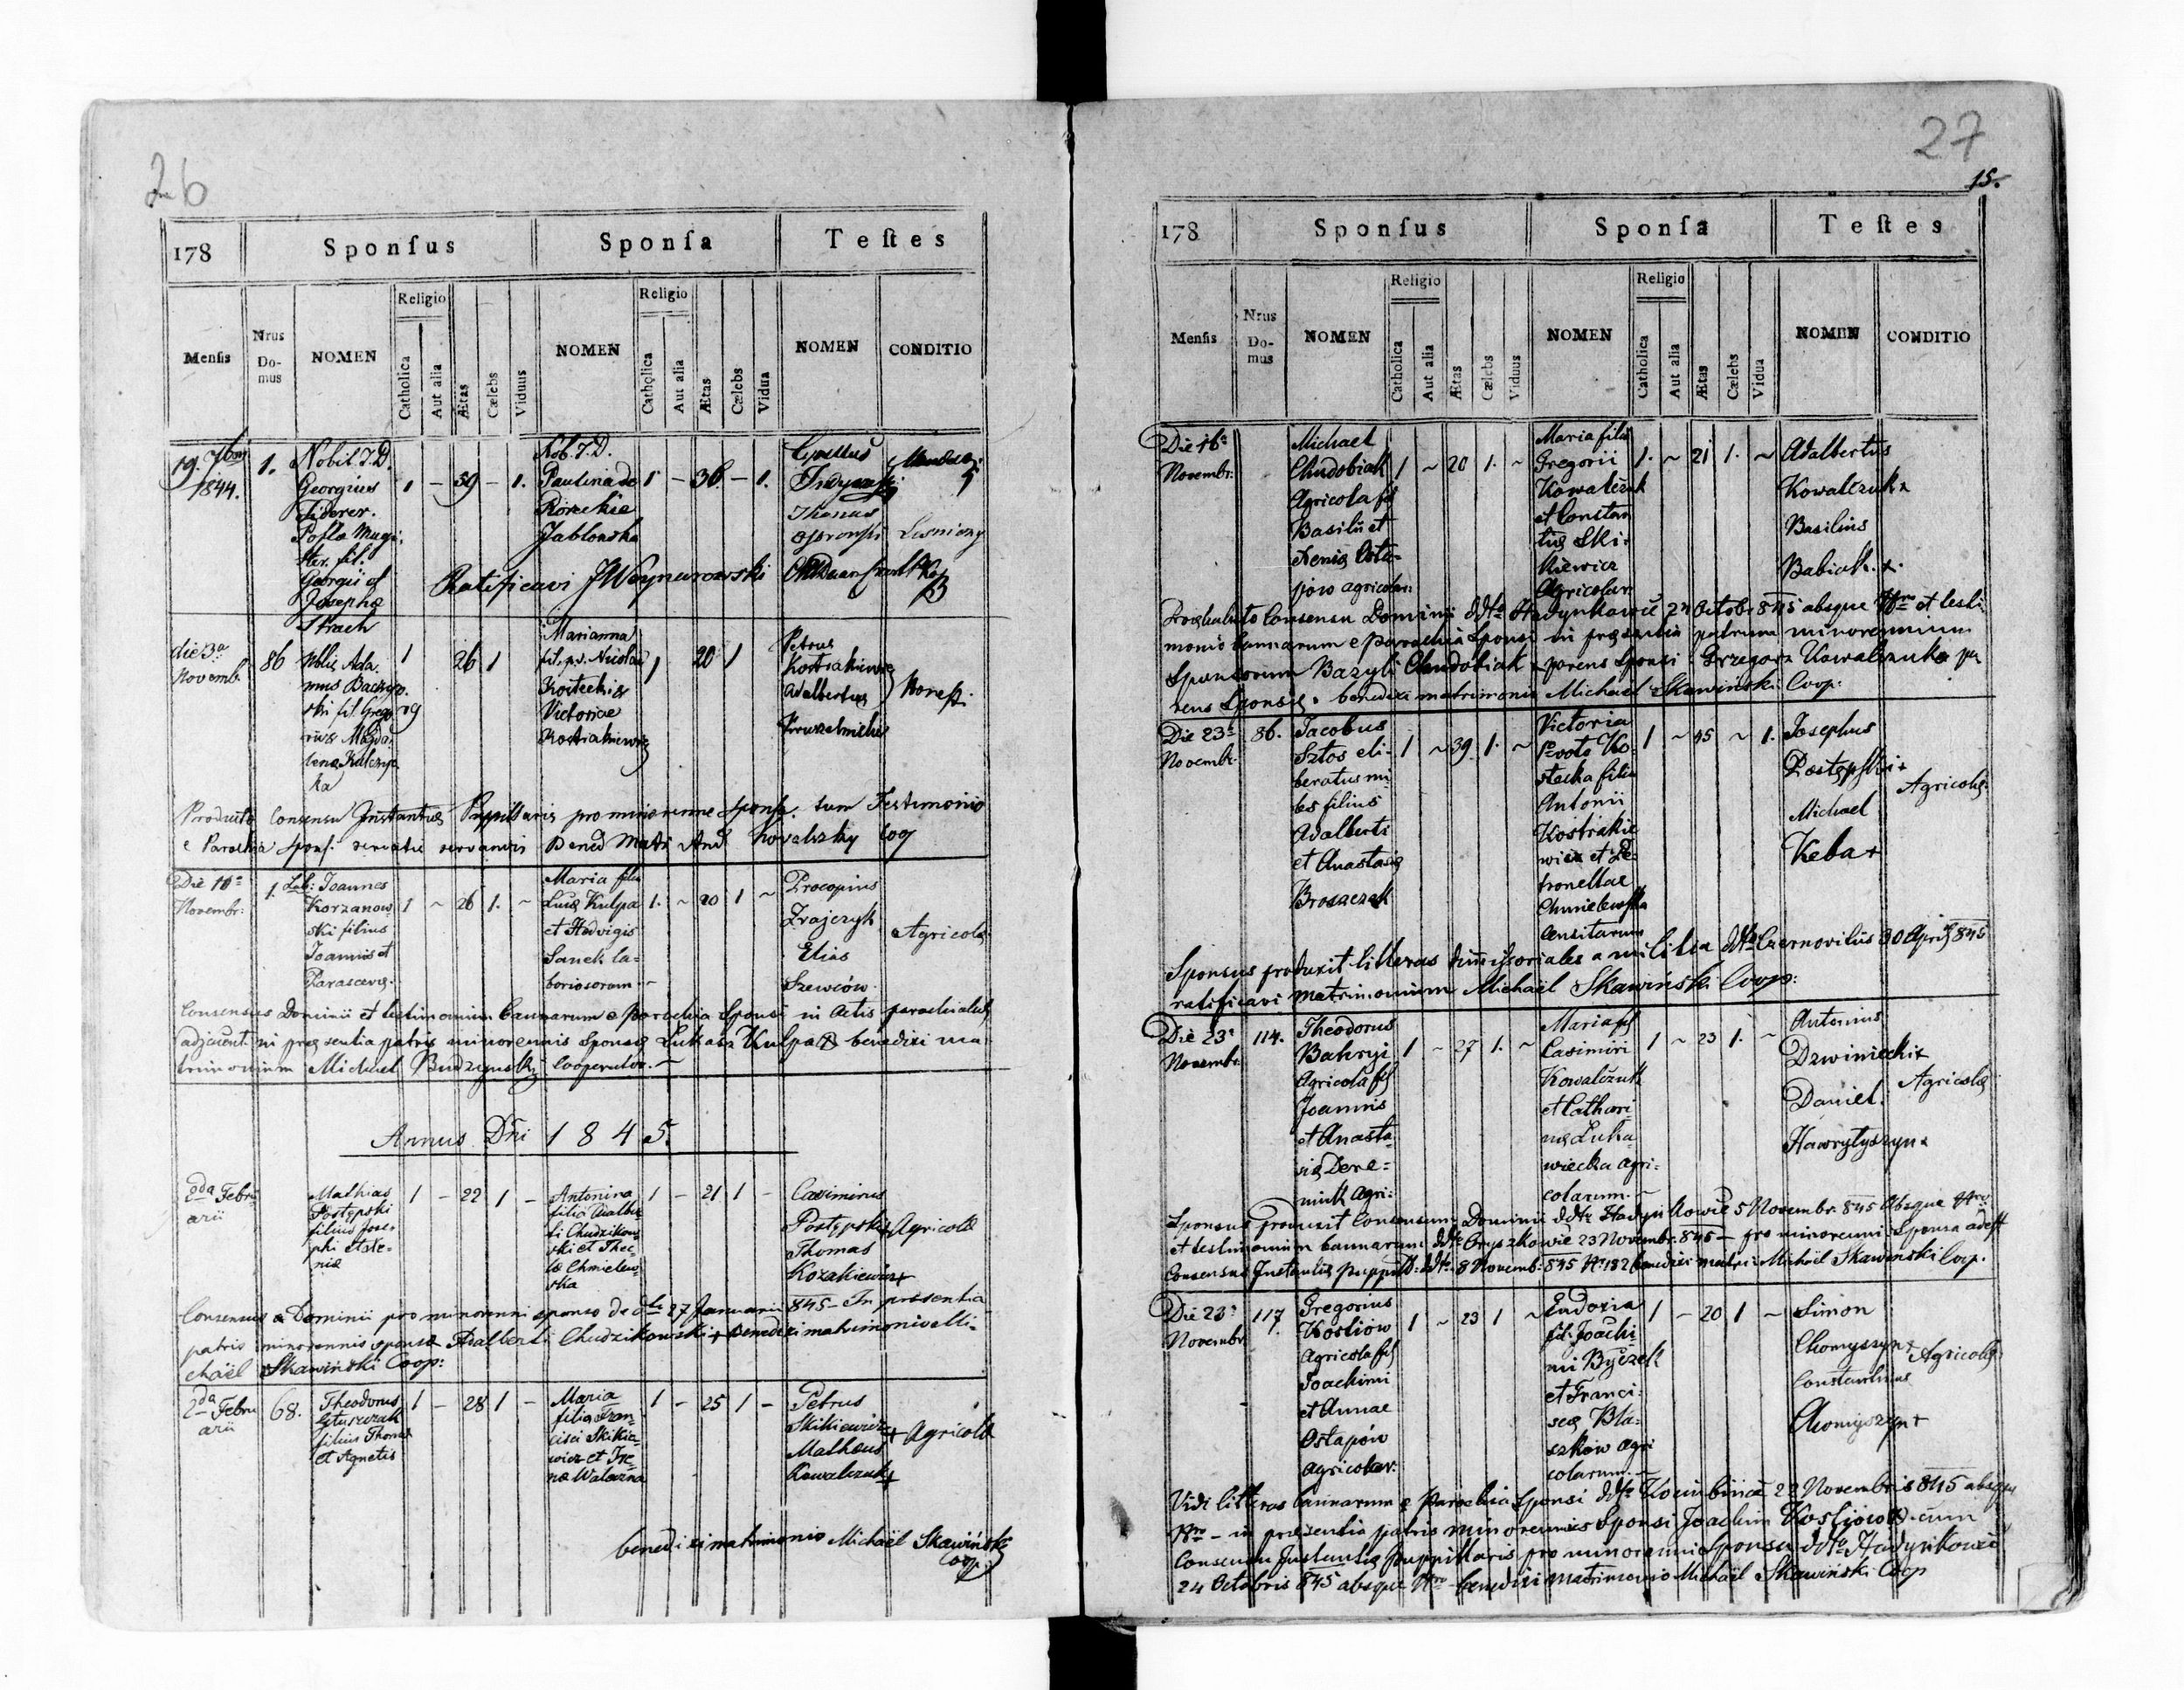 26
178
Sponſus
Sponſa
Teſtes
Menſis
Nrus Domus
NOMEN
Religio
Catholica
Aut alia
Ætas
Cælebs
Viduus
NOMEN
Religio
Catholica
Aut alia
Ætas
Cælebs
Vidua
NOMEN
CONDITIO
19. 7bris 1844.
1.
Nobil. J. D.
Georgius
fil.
Georgii et
Josepha
Strach
1 - 59 - 1.
Nob. J. D.
Paulina de
Jablonska
1 - 36 - 1.
Thomas
Ratificavi
die 3a
Novemb.
86
Nblis Ada-
mus
ski fil. Grego
rius Magda-
lena
ka
1
26 1
Marianna
Nicolai
Kosteckie
Victoriae
Kostrakiewicz
1 20 1
Petrus
Kostrakiewicz
Adalbertus
Producto Consensu Instantiae Pupillaris pro minorenne Sponsa. tum Testimonio
e Parochia Sponsi servatis servandis Bened Matr And Kovalszky Coop
Die 10a
Novembr:
1.
Lab: Joannes
Korzanow
ski filius
Joannis et
Parascevae.
1 ~ 26 1. ~
Maria filia
Lucae Kulpa
et Hedvigis
Sanek la-
boriosorum
1. ~ 20 1 ~
Procopius
Zrajczyk
Elias
Szewców
Agricolae
Consensus Dominii et testimonium bannorum e parochia Sponsi in Actis parochialibus
adjacent. in praesentia patris minorennis Sponsae Lukasz Kulpa benedixi ma-
trimonium Michael Budzynski Cooperator.
Annus Dni 1845.
2da Febru
arii
Mathias
Postępski
filius Jose-
phi et Ste-
niae
1 - 22 1 -
Antonina
filia Adalber-
ti Chudzikow
ski et Thec-
lae Chmielew-
ska
1 - 21 1 -
Casimirus
Postępski+
Thomas
Kozakiewicz+
Agricolae
Consensus a Dominii pro minorenni sponso de dto 27 Januarii 845 - In praesentia
patris minorennis sponsae Adalberti Chudzikowski + benedixi matrimonio Mi-
chaël Skawiński Coop:
2da Febru
arii
68.
Theodorus
filius Thomae
et Agnetis
1 - 28 1 -
Maria
filia Fran-
cisci Skikie-
wicz et Ire-
nae Waleczna
1 - 25 1 -
Petrus
Skikiewicz+
Mathaeus
Kowalczuk+
Agricolae
benedixi matrimonio Michaël Skawiński
Coop.
27
15.
178
Sponſus
Sponſa
Teſtes
Menſis
Nrus Domus
NOMEN
Religio
Catholica
Aut alia
Ætas
Cælebs
Viduus
NOMEN
Religio
Catholica
Aut alia
Ætas
Cælebs
Vidua
NOMEN
CONDITIO
Die 16a
Novembr:
Michael
Chudobiak
Agricola fil
Basilii et
Xeniae Osta-
pow agricolar:
1 ~ 20 1. ~
Maria filia
Gregorii
Kowalczuk
et Constan
tiae Ski-
kiewicz
Agricolar
1. ~ 21 1. ~
Adalbertus
Kowalczuk x
Basilius
Babiak. x.
Consensu Dominii ddto Hadynkowce 24 Octob: 845 absque Nro et testi
monio bannorum e parochia Sponsi in praesentia patrum minorennium
Sponsorum Bazyli Chudobiak x parens Sponsi Grzegorz Kowalczuk x pa
rens Sponsae. benedixi matrimonio Michaël Skawiński Coop:
Die 23a
Novembr:
86.
Jacobus
Sztos eli-
beratus mi-
les filius
Adalberti
et Anastasiae
1 ~ 39 1. ~
Victoria
1o voto Ko-
stecka filia
Antonii
Kostrakie
wicz et Pe-
tronellae
Chmielewska
1 ~ 45 ~ 1.
Josephus
Postępski+
Michael
Keba+
Agricolae
Sponsus produxit litteras dimissoriales a militia ddto Czernoviliis 30 Aprilis 845
ratificavi matrimonium Michaël Skawiński Coop:
Die 23a
Novembr.
114.
Theodorus
Bahryj
Agricola fil
Joannis
et Anasta-
siae Dere-
miuk Agri-
1 ~ 27 1. ~
Maria fil
Casimiri
Kowalczuk
et Cathari-
nae Luka
wiecka agri-
colarum.
1 ~ 23 1. ~
Antonius
Dzwiniecki x
Daniel
Hawrylyszyn x
Agricolae
Sponsus produxit Consensum Dominii ddto Hadynkowce 5 Novembr: 845 Absque Nro
et testimonium bannorum ddto Oryszkowce 23 Novembr: 845 - pro minorenni Sponsa adest
Consensus Instantiae puppill: ddto 8 Novemb: 845 Nr: 182 benedixi matri: Michaël Skawinski Coop.
Die 23a
Novembr.
117.
Gregorius
Kosliów
Agricola fil
Joachimi
et Annae
Ostapów
Agricolar:
1 ~ 23 1 ~
Eudoxia
fil: Joachi
mi Byczek
et Franci-
scae Bla-
szków agri
colarum.
1 - 20 1 ~
Simon
Chomyszyn+
Constantinus
Chomyszyn+
Agricolae
Vidi litteras bannorum e Parochia Sponsi ddto 22 Novembris 845 absque
Nro - in praesentia patris minorennis Sponsi Joachim Kosliów cum
Consensu Instantiae puppillaris pro minorenni Sponsa ddto Hadynkowce
24 Octobris 845 absque Nro benedixi matrimonio Michaël Skawiński Coop